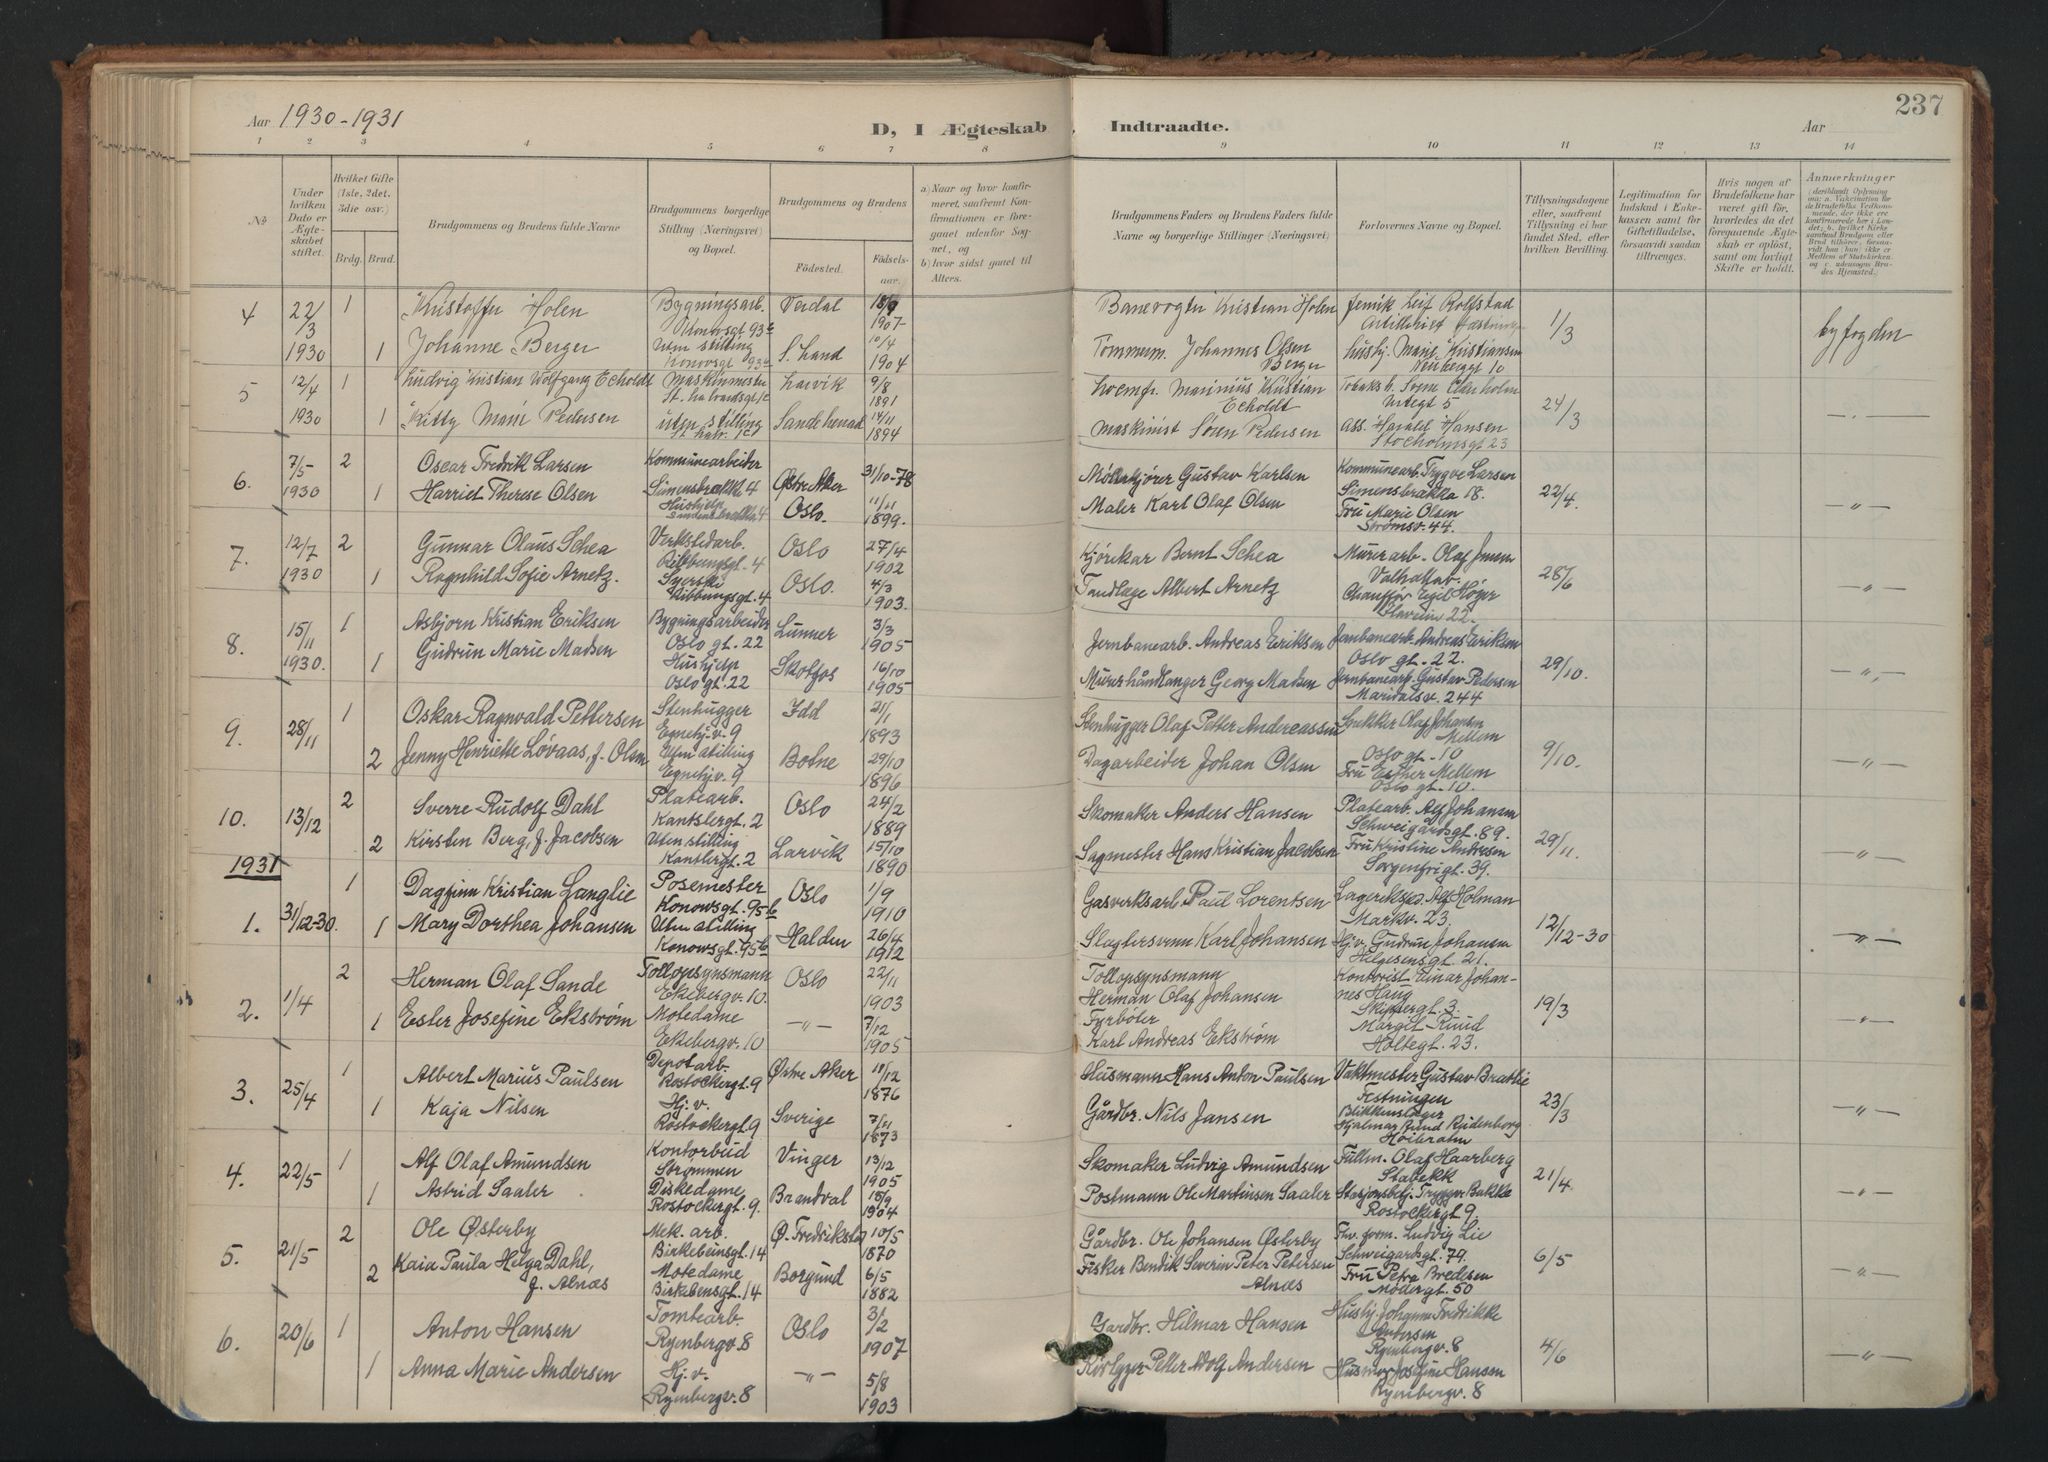 237
Aar 1930-1931
D, I Ægteskab Indtraadte.
Aar
1 2 3 4 5 6 7 8 9 10 11 12 13 14
№
Under hvilken Dato er Ægteskabet stiftet.
Hvilket Gifte (1ste, 2det, 3die osv.)
Brdg. Brud.
Brudgommens og Brudens fulde Navne
Brudgommens borgerlige Stilling (Næringsvei) og Bopæl.
Brudgommens og Brudens
Fødested.
Fødselsaar.
a) Naar og hvor konfirmeret, saafremt Konfirmationen er foregaaet udenfor Sognet, og
b) hvor sidst gaaet til Alters.
Brudgommens Faders og Brudens Faders fulde Navne og borgerlige Stillinger (Næringsvei)
Forlovernes Navne og Bopæl.
Tillysningsdagene eller, saafremt Tillysning ei har fundet Sted, efter hvilken Bevilling.
Legitimation for Indskud i Enkekassen samt for Giftetilladelse, forsaavidt saadan tiltrænges.
Hvis nogen af Brudefolkene har været gift før, hvorledes da det foregaaende Ægteskab er opløst, samt om lovligt Skifte er holdt.
Anmærkninger
4 22/3 1930 1 Kristoffer Holen Bygningsarb. Konowsgt 93c Verdal 18/9 1907 Banevogter Kristian Holen Leif Rolfstad 1/3 byfogden
1 Johanne Berger uten stilling Konovsgt 93c S. Land 10/4 1904 Tømmerm. Johannes Olsen Berger Husbj. Marie Kristiansen Neuberggt 10
5 12/4 1930 1 Ludvig Kristian Wolfgang Echoldt Maskinmester St. Halvardsgt 1c Larvik 9/8 1891 Marinius Kristian Echoldt 24/3 —〃—
1 Kitty Marie Pedersen uten stilling St. halv. 1c Sandeherad 14/11 1894 Maskinist Søren Pedersen Ass. Harald Hansen Stocholmsgt 23
6. 7/5 1930 2 Oscar Fredrik Larsen Kommunearbeider Simensbrækka 4 Østre Aker 31/10-78 Møllekjører Gustav Karlsen Kommunearb. Trygve Larsen Simensbrakka 18. 22/4. —〃—
1 Harriet Therese Olsen Hushjelp Simensbrækka 4 Oslo. 11/11 1899. Maler Karl Olaf Olsen Fru Marie Olsen Strømsv. 44.
7. 12/7 1930 2 Gunnar Olaus Schea Verkstedarb. Ribbungsgt. 4 Oslo 27/4 1902 Kjørekar Bernt Schea Murerarb. Olaf Jensen Valhallav. 28/6 —〃—
1 Ragnhild Sofie Arnetz. Syerske Ribbungsgt. 4 Oslo. 4/3 1903. Tandlæge Albert Arnetz Chauffør Egil Høyer 22.
8. 15/11 1930. 1 Asbjørn Kristian Eriksen Bygningsarbeider Oslo gt. 22 Lunner 3/3 1905 Jernbanearb. Andreas Eriksen Jernbanearb. Andreas Eriksen Oslo gt. 22. 29/10. —〃—
1 Gudrun Marie Madsen Hushjelp Oslo gt. 22 Skotfos 16/10 1905 Murerhåndlanger Georg Madsen Jernbanearb. Gustav Pedersen Maridalsv. 244
9. 28/11 1 Oskar Ragnvald Pettersen Stenhugger Egnehj.v. 9 Idd 21/1 1893 Stenhugger Olaf Petter Andreassen Snekker Olaf Johansen Mellem Oslo gt. 10 9/10. —〃—
2 Jenny Henriette Løvaas, f. Olsen Uten stilling Egnehjv. 9 Botne 29/10 1896 Dagarbeider Johan Olsen Fru Esther Mellem Oslo gt. 10.
10. 13/12 2 Sverre Rudolf Dahl Platearb. Kantslergt. 2 Oslo 24/2 1889 Skomaker Anders Hansen Platearb. Alf Johansen Schweigårdsgt. 89. 29/11. —〃—
2 Kirsten Berg, f. Jacobsen Uten stilling Kantslergt. 2 Larvik 15/10 1890 Sagmester Hans Kristian Jacobsen Fru Kristine Andresen Sorgenfrigt. 39.
1931
1. 31/12-30. 1 Dagfinn Kristian Langlie Posemester Konowsgt. 95b Oslo 1/9 1910 Gasverksarb. Paul Lorentsen Lagereksped. Alf Holman Markv. 23. 12/12-30 —〃—
1 Mary Dorthea Johansen Uten stilling Konowsgt. 95b Halden 26/4 1912 Slagtersvenn Karl Johansen Hj.v. Gudrun Johansen Helgesensgt. 21.
2. 1/4 2 Herman Olaf Sande Tollopsynsmann Ekebergv. 10. Oslo 22/11 1903 Tollopsynsmann Herman Olaf Johansen Kontorist Einar Johannes Haug Skippergt. 3. 19/3 —〃—
1 Ester Josefine Ekstrøm Motedame Ekebergv. 10 —〃— 7/12 1905 Fyrbøter Karl Andreas Ekstrøm Margit Ruud Holtegt. 23.
3. 25/4 1 Albert Marius Paulsen Depotarb. Rostockergt. 9 Østre Aker 11/12 1876 Husmann Hans Anton Paulsen Vaktmester Gustav Bratlie Festningen 23/3 —〃—
1 Kaja Nilsen Hj.v. Rostockergt. 9 Sverige 7/11 1873 Gårdbr. Nils Jansen Blikkenslager Hjalmar Rydenborg
4. 22/5 1 Alf Olaf Amundsen Kontorbud Strømmen Vinger 13/12 1905 Skomaker Ludvig Amundsen Fullm. Olaf Haarberg Stabekk 21/4. —〃—
1 Astrid Saaler Diskedame Rostockergt. 9. Brandval 18/9 1904 Postmann Ole Martinsen Saaler Stasjonsbetj. Trygger Bakke Rostockergt. 9.
5. 21/5 2 Ole Østerby Mek. arb. Birkebeinsgt. 14 Ø. Fredrikstad 10/5 1870 Gårdbr. Ole Johansen Østerby Fhv. form. Ludvig Lie Schweigardsgt. 79. 6/5 —〃—
2 Kaia Paula Helga Dahl, f. Alnæs Motedame Birkebensgt. 14 Borgund 6/5 1882 Fisker Bendik Severin Peter Petersen Alnæs Fru Petra Bredesen Mødergt. 50
6. 20/6 1 Anton Hansen Tomtearb. Ryenbergv. 8 Oslo 3/2 1907 Gardbr. Hilmar Hansen Husbj. Johanne Fredrikke Andersen Ryenbergv. 8 4/6 —〃—
1 Anna Marie Andersen Hj.v. Ryenbergv. 8 —〃— 5/8 1903 Petter Adolf Andersen Husmor Josefine Hansen Ryenbergv. 8